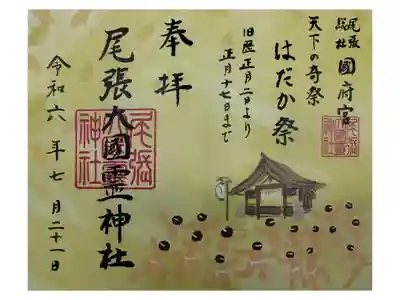 尾張
総社
國府宮
天下の奇祭
はだか祭
旧暦正月二日より
正月十七日まで
奉拝
尾張大國霊神社
令和六年七月二十一日